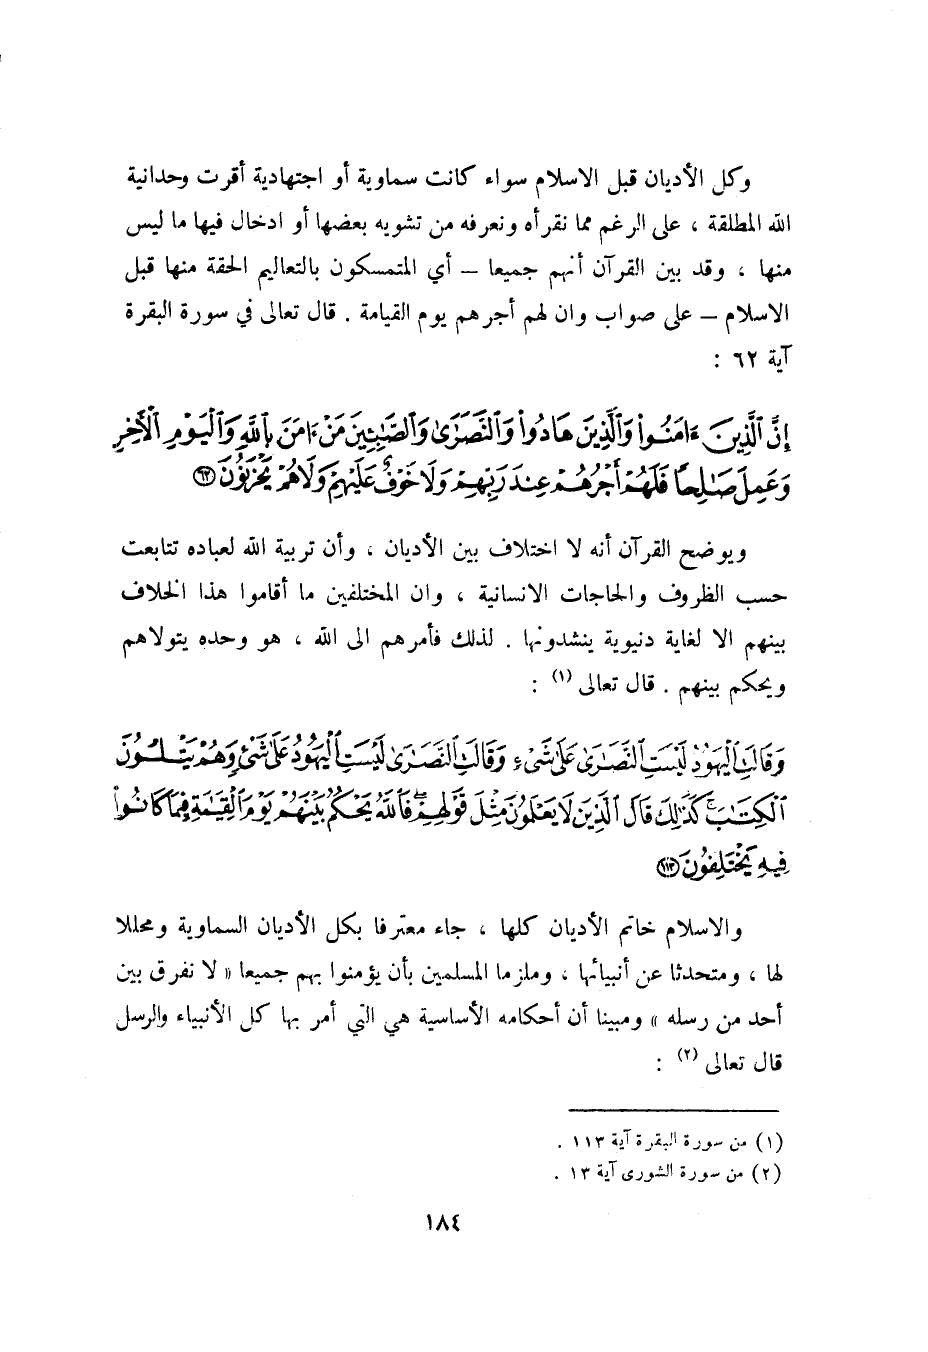 وكل الأديان قبل الاسلام سواء كانت سماوية أو اجتهادية أقرت وحدانية
الله المطلقة ، على الرغم مما نقرأه ونعرفه من تشويه بعضها أو ادخال فيها ما ليس
منها ، وقد بين القرآن أنهم جميعا – أي المتمسكون بالتعاليم الحقة منها قبل
الاسلام – على صواب وان لهم أجرهم يوم القيامة . قال تعالى في سورة البقرة
آية ٦٢ :
إِنَّ ٱلَّذِينَ ءَامَنُوا۟ وَٱلَّذِينَ هَادُوا۟ وَٱلنَّصَٰرَىٰ وَٱلصَّٰبِـِٔينَ مَنْ ءَامَنَ بِٱللَّهِ وَٱلْيَوْمِ ٱلْأَخِرِ
وَعَمِلَ صَٰلِحًا فَلَهُمْ أَجْرُهُمْ عِندَ رَبِّهِمْ وَلَا خَوْفٌ عَلَيْهِمْ وَلَا هُمْ يَحْزَنُونَ ٦٢
ويوضح القرآن أنه لا اختلاف بين الأديان ، وأن تربية الله لعباده تتابعت
حسب الظروف والحاجات الانسانية ، وان المختلفين ما أقاموا هذا الخلاف
بينهم الا لغاية دنيوية ينشدونها . لذلك فأمرهم الى الله ، هو وحده يتولاهم
ويحكم بينهم . قال تعالى (١) :
وَقَالَتِ ٱلْيَهُودُ لَيْسَتِ ٱلنَّصَٰرَىٰ عَلَىٰ شَىْءٍ وَقَالَتِ ٱلنَّصَٰرَىٰ لَيْسَتِ ٱلْيَهُودُ عَلَىٰ شَىْءٍ وَهُمْ يَتْلُونَ
ٱلْكِتَٰبَ ۗ كَذَٰلِكَ قَالَ ٱلَّذِينَ لَا يَعْلَمُونَ مِثْلَ قَوْلِهِمْ ۚ فَٱللَّهُ يَحْكُمُ بَيْنَهُمْ يَوْمَ ٱلْقِيَٰمَةِ فِيمَا كَانُوا۟
فِيهِ يَخْتَلِفُونَ ١١٣
والاسلام خاتم الأديان كلها ، جاء معترفا بكل الأديان السماوية ومحللا
لها ، ومتحدثا عن أنبيائها ، وملزما المسلمين بأن يؤمنوا بهم جميعا « لا نفرق بين
أحد من رسله » ومبينا أن أحكامه الأساسية هي التي أمر بها كل الأنبياء والرسل
قال تعالى (٢) :
(١) من سورة البقرة آية ١١٣ .
(٢) من سورة الشورى آية ١٣ .
١٨٤